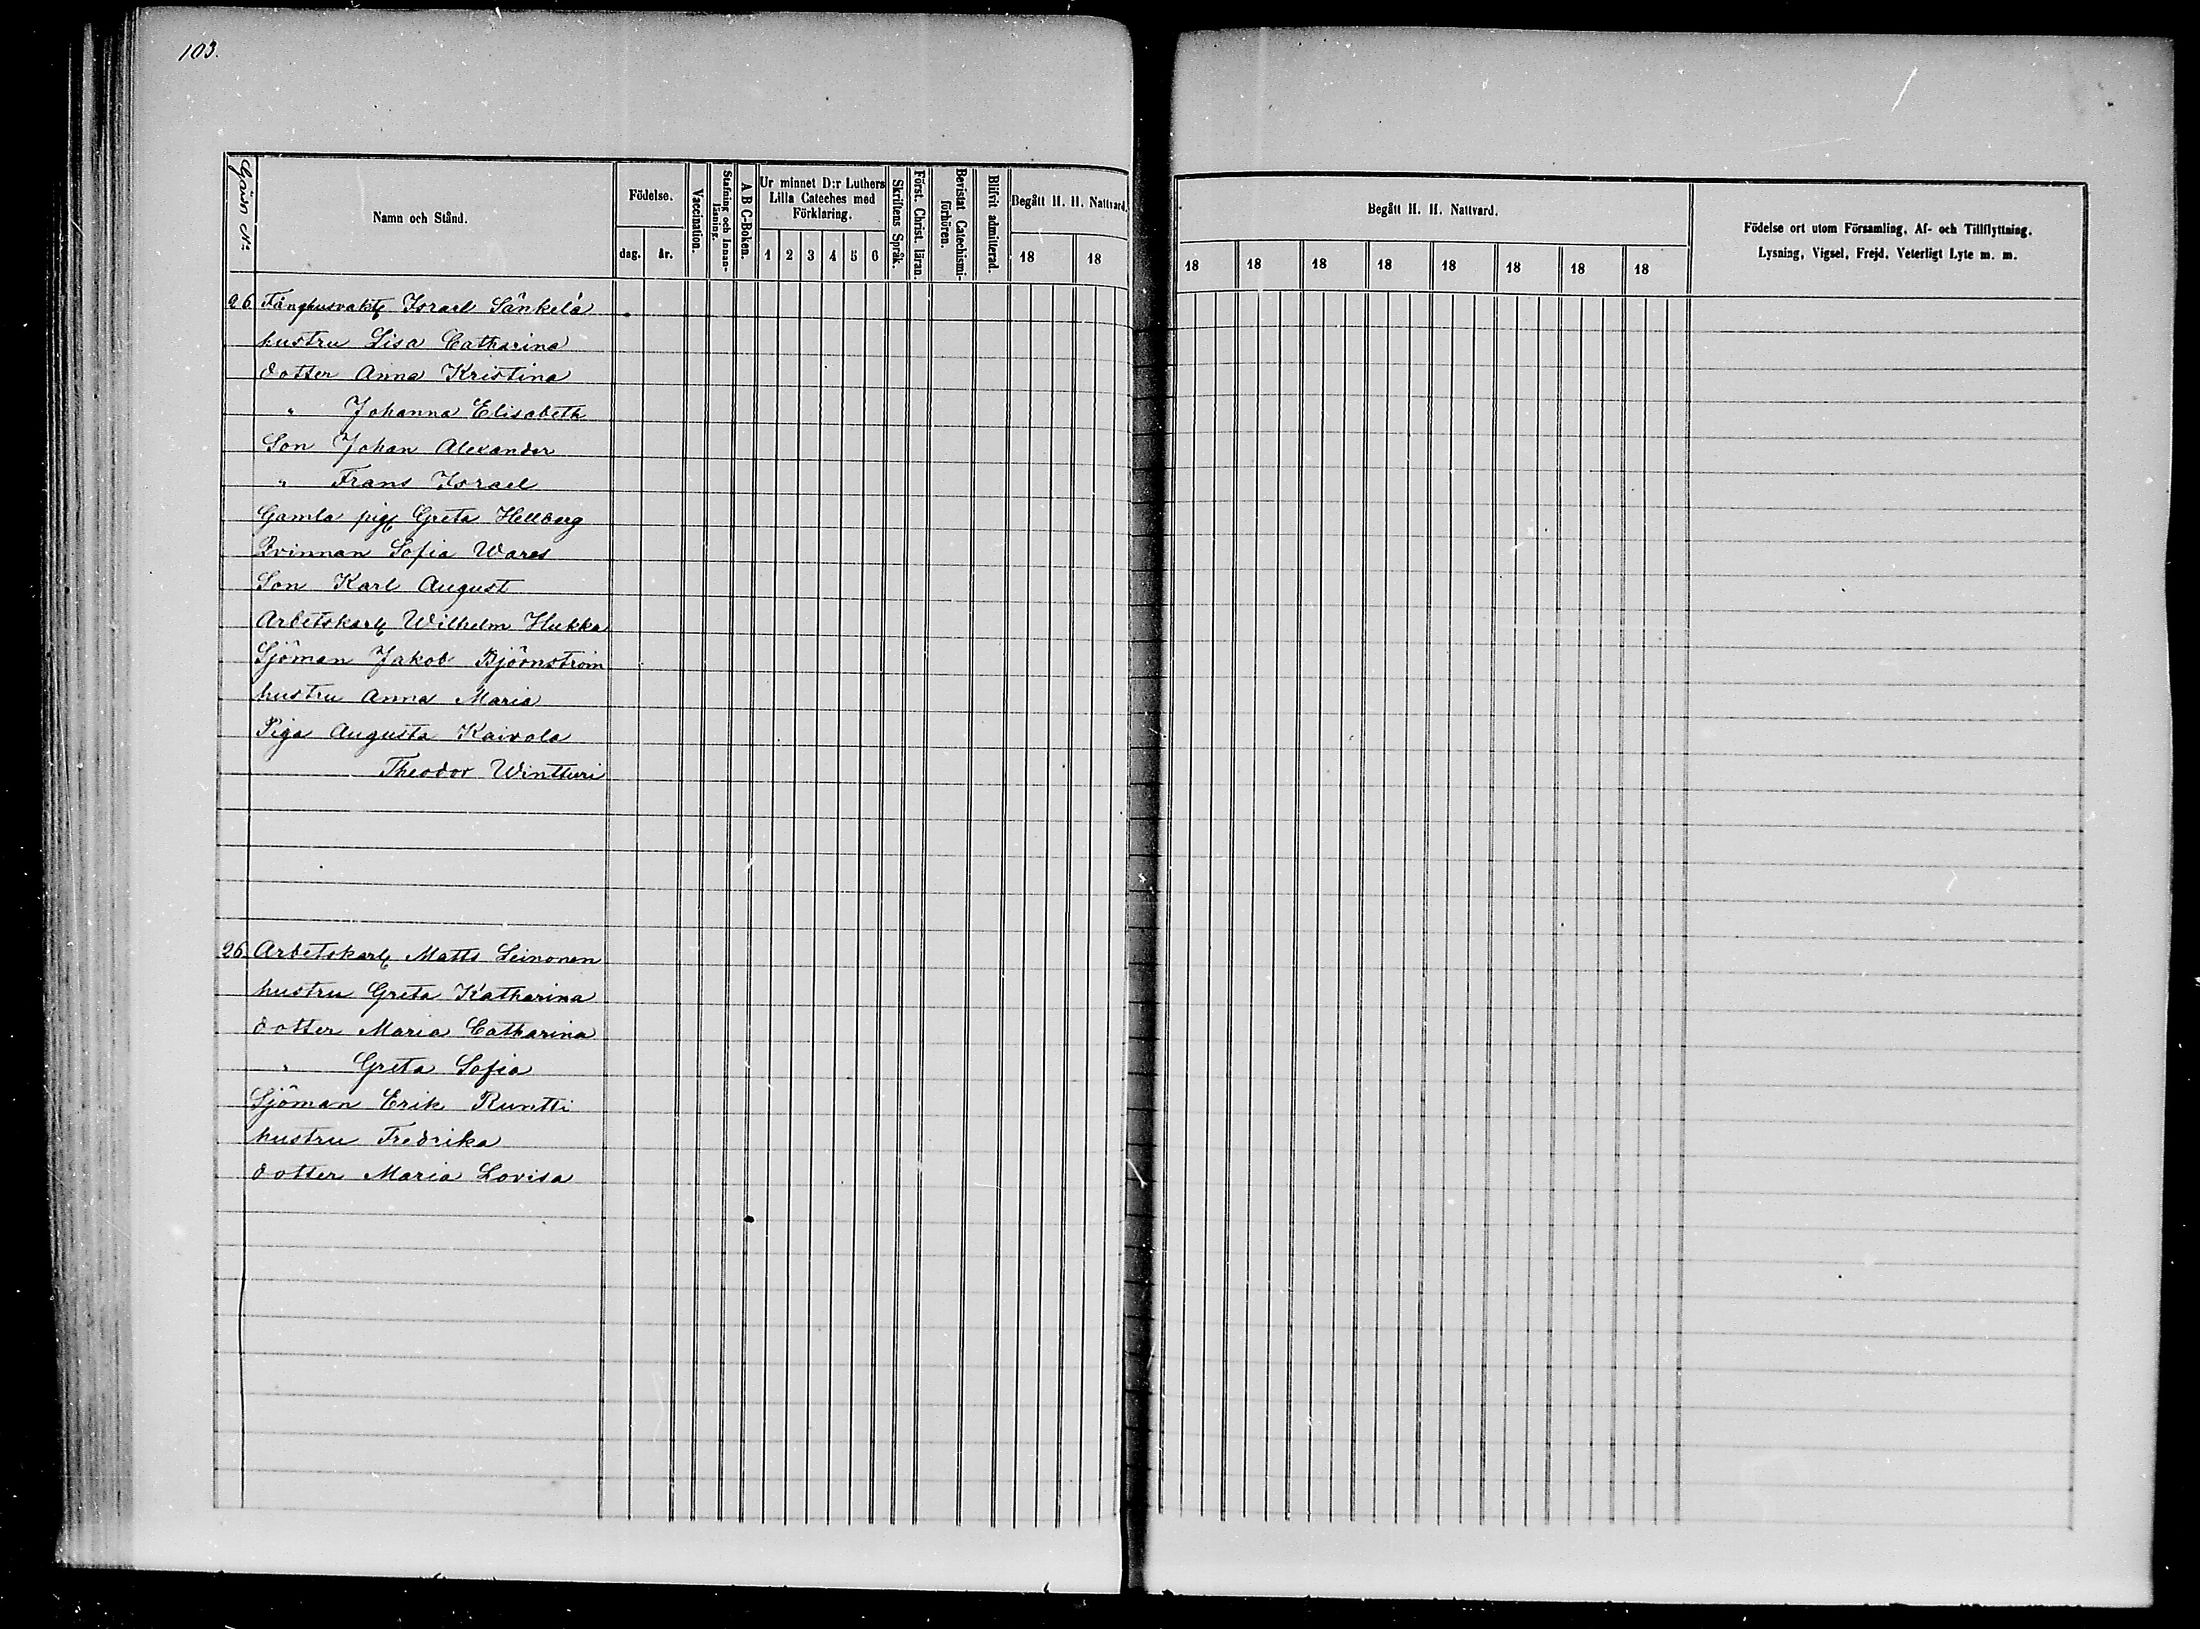 103.
Gård Nr
Namn och Stånd.
Födelse.
dag. år.
Vaccination.
Stafning och Innan-läsning.
A B C-Boken.
Ur minnet D:r Luthers
Lilla Cateches med
Förklaring.
1 2 3 4 5 6
Skriftens Språk.
Först. Christ. läran.
Bevistat Catechismi-förhören.
Blifvit admitterad.
Begått H. H. Nattvard.
18 18
Begått H. H. Nattvard.
18 18 18 18 18 18 18 18
Födelse ort utom Församling, Af- och Tillflyttning.
Lysning, Vigsel, Frejd, Veterligt Lyte m. m.
26 Fånghusvakt Israel Sänkelä
hustru Lisa Catharina
dotter Anna Kristina
" Johanna Elisabeth
Son Johan Alexander
" Frans Israel
Gamla pig Greta Hellberg
Qvinnan Sofia Wares
Son Karl August
Arbetskarl Wilhelm Hukka
Sjöman Jakob Björnström
hustru Anna Maria
Piga Augusta Kaivola
Theodor Wintturi
26 Arbetskarl Matts Leinonen
hustru Greta Katharina
dotter Maria Catharina
" Greta Sofia
Sjöman Erik Runtti
hustru Fredrika
dotter Maria Lovisa